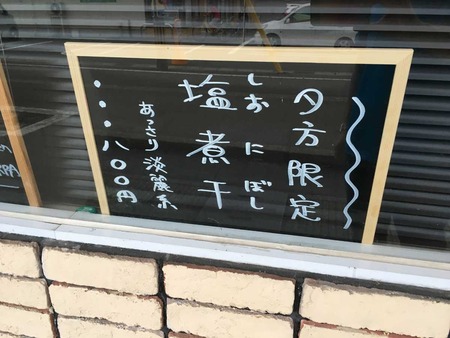 夕方限定
しおにぼし
塩煮干
あっさり淡麗系
・・・八〇〇円